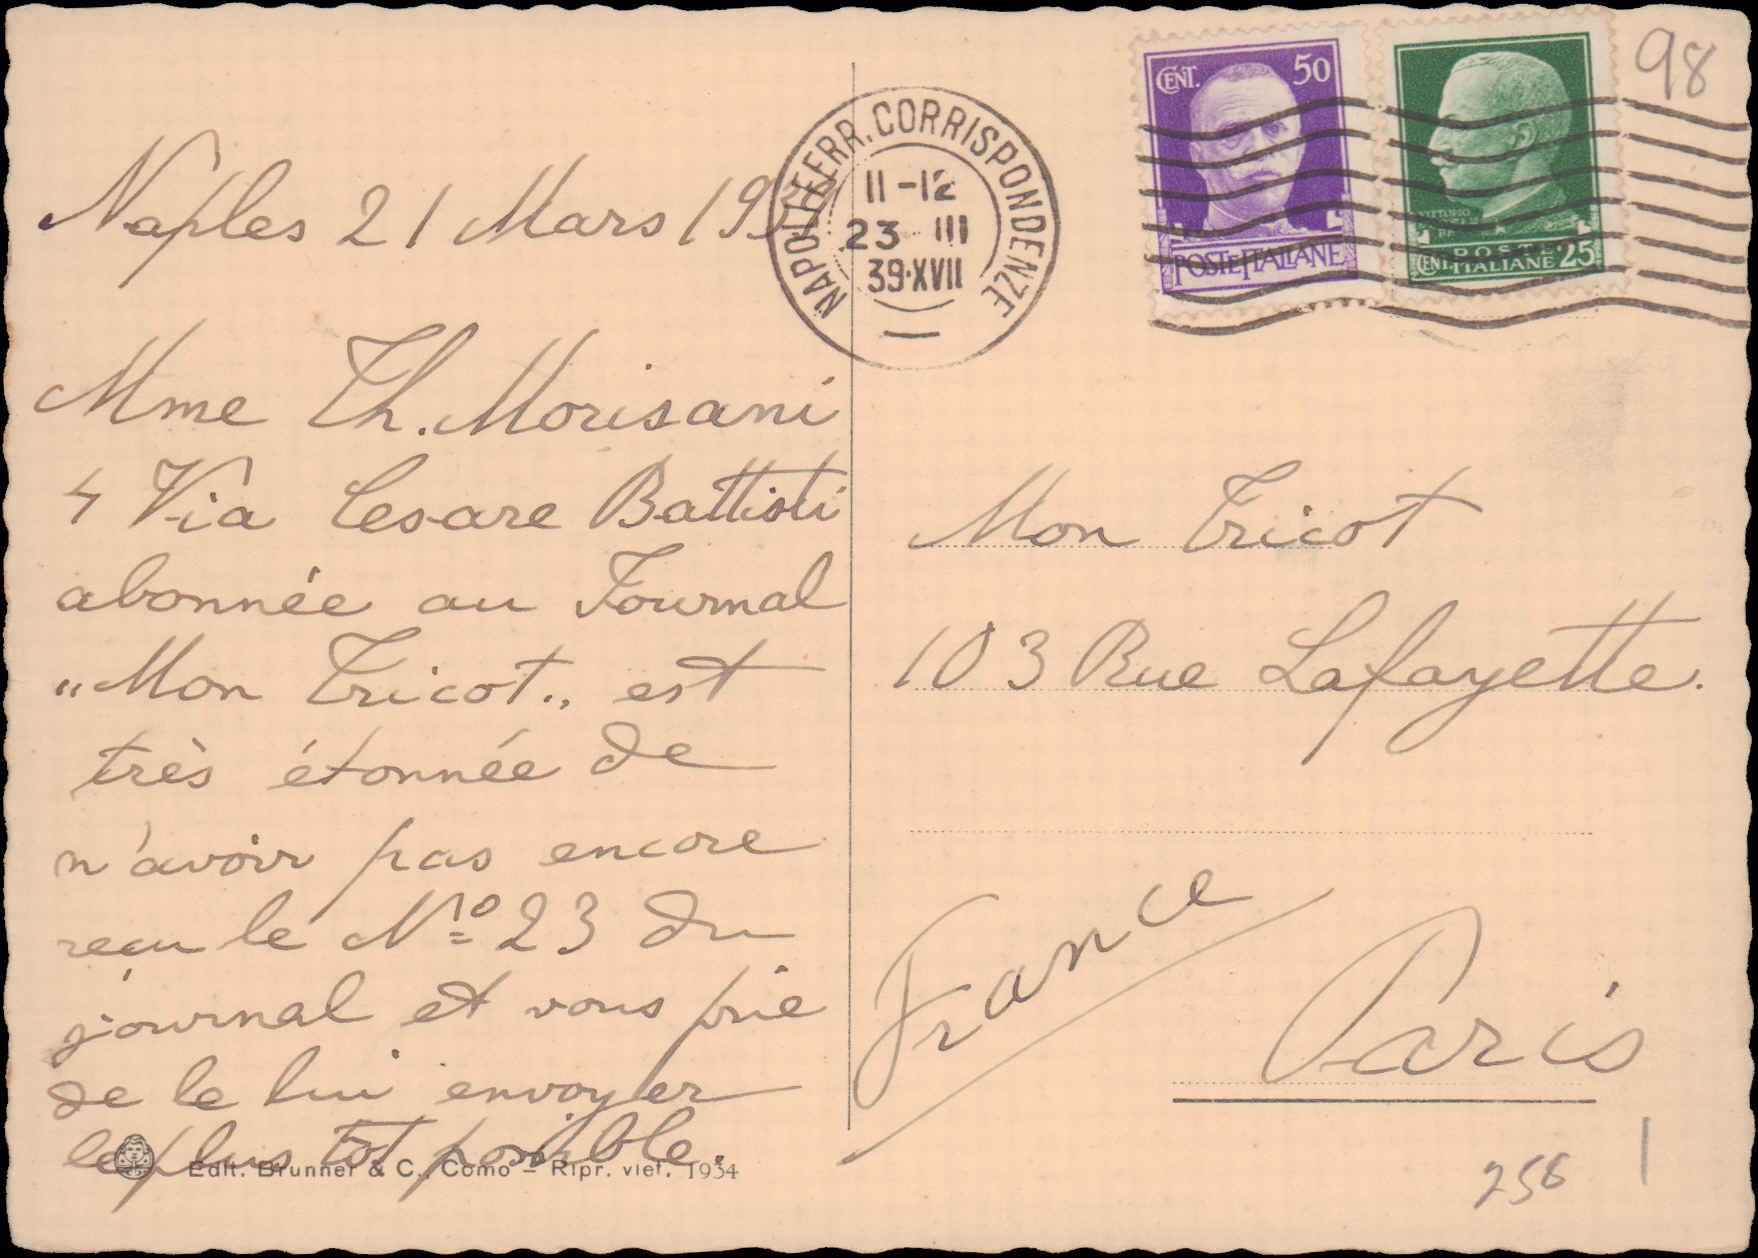 Naples 21 Mars 193
Mme Th. Morisani
4 Via Cesare Battisti
abonnée au Journal
"Mon Tricot" est
très étonnée de
n'avoir pas encore
reçu le Nº 23 du
journal et vous prie
de le lui envoyer
le plus tôt possible.
Edit. Brunner & C., Como - Ripr. viet. 1934
NAPOLI FERR. CORRISPONDENZE
11-12
23 III
39·XVII
CENT. 50
POSTE ITALIANE
POSTE
CENT. ITALIANE 25
98
Mon Tricot
103 Rue Lafayette.
France
Paris
256
1